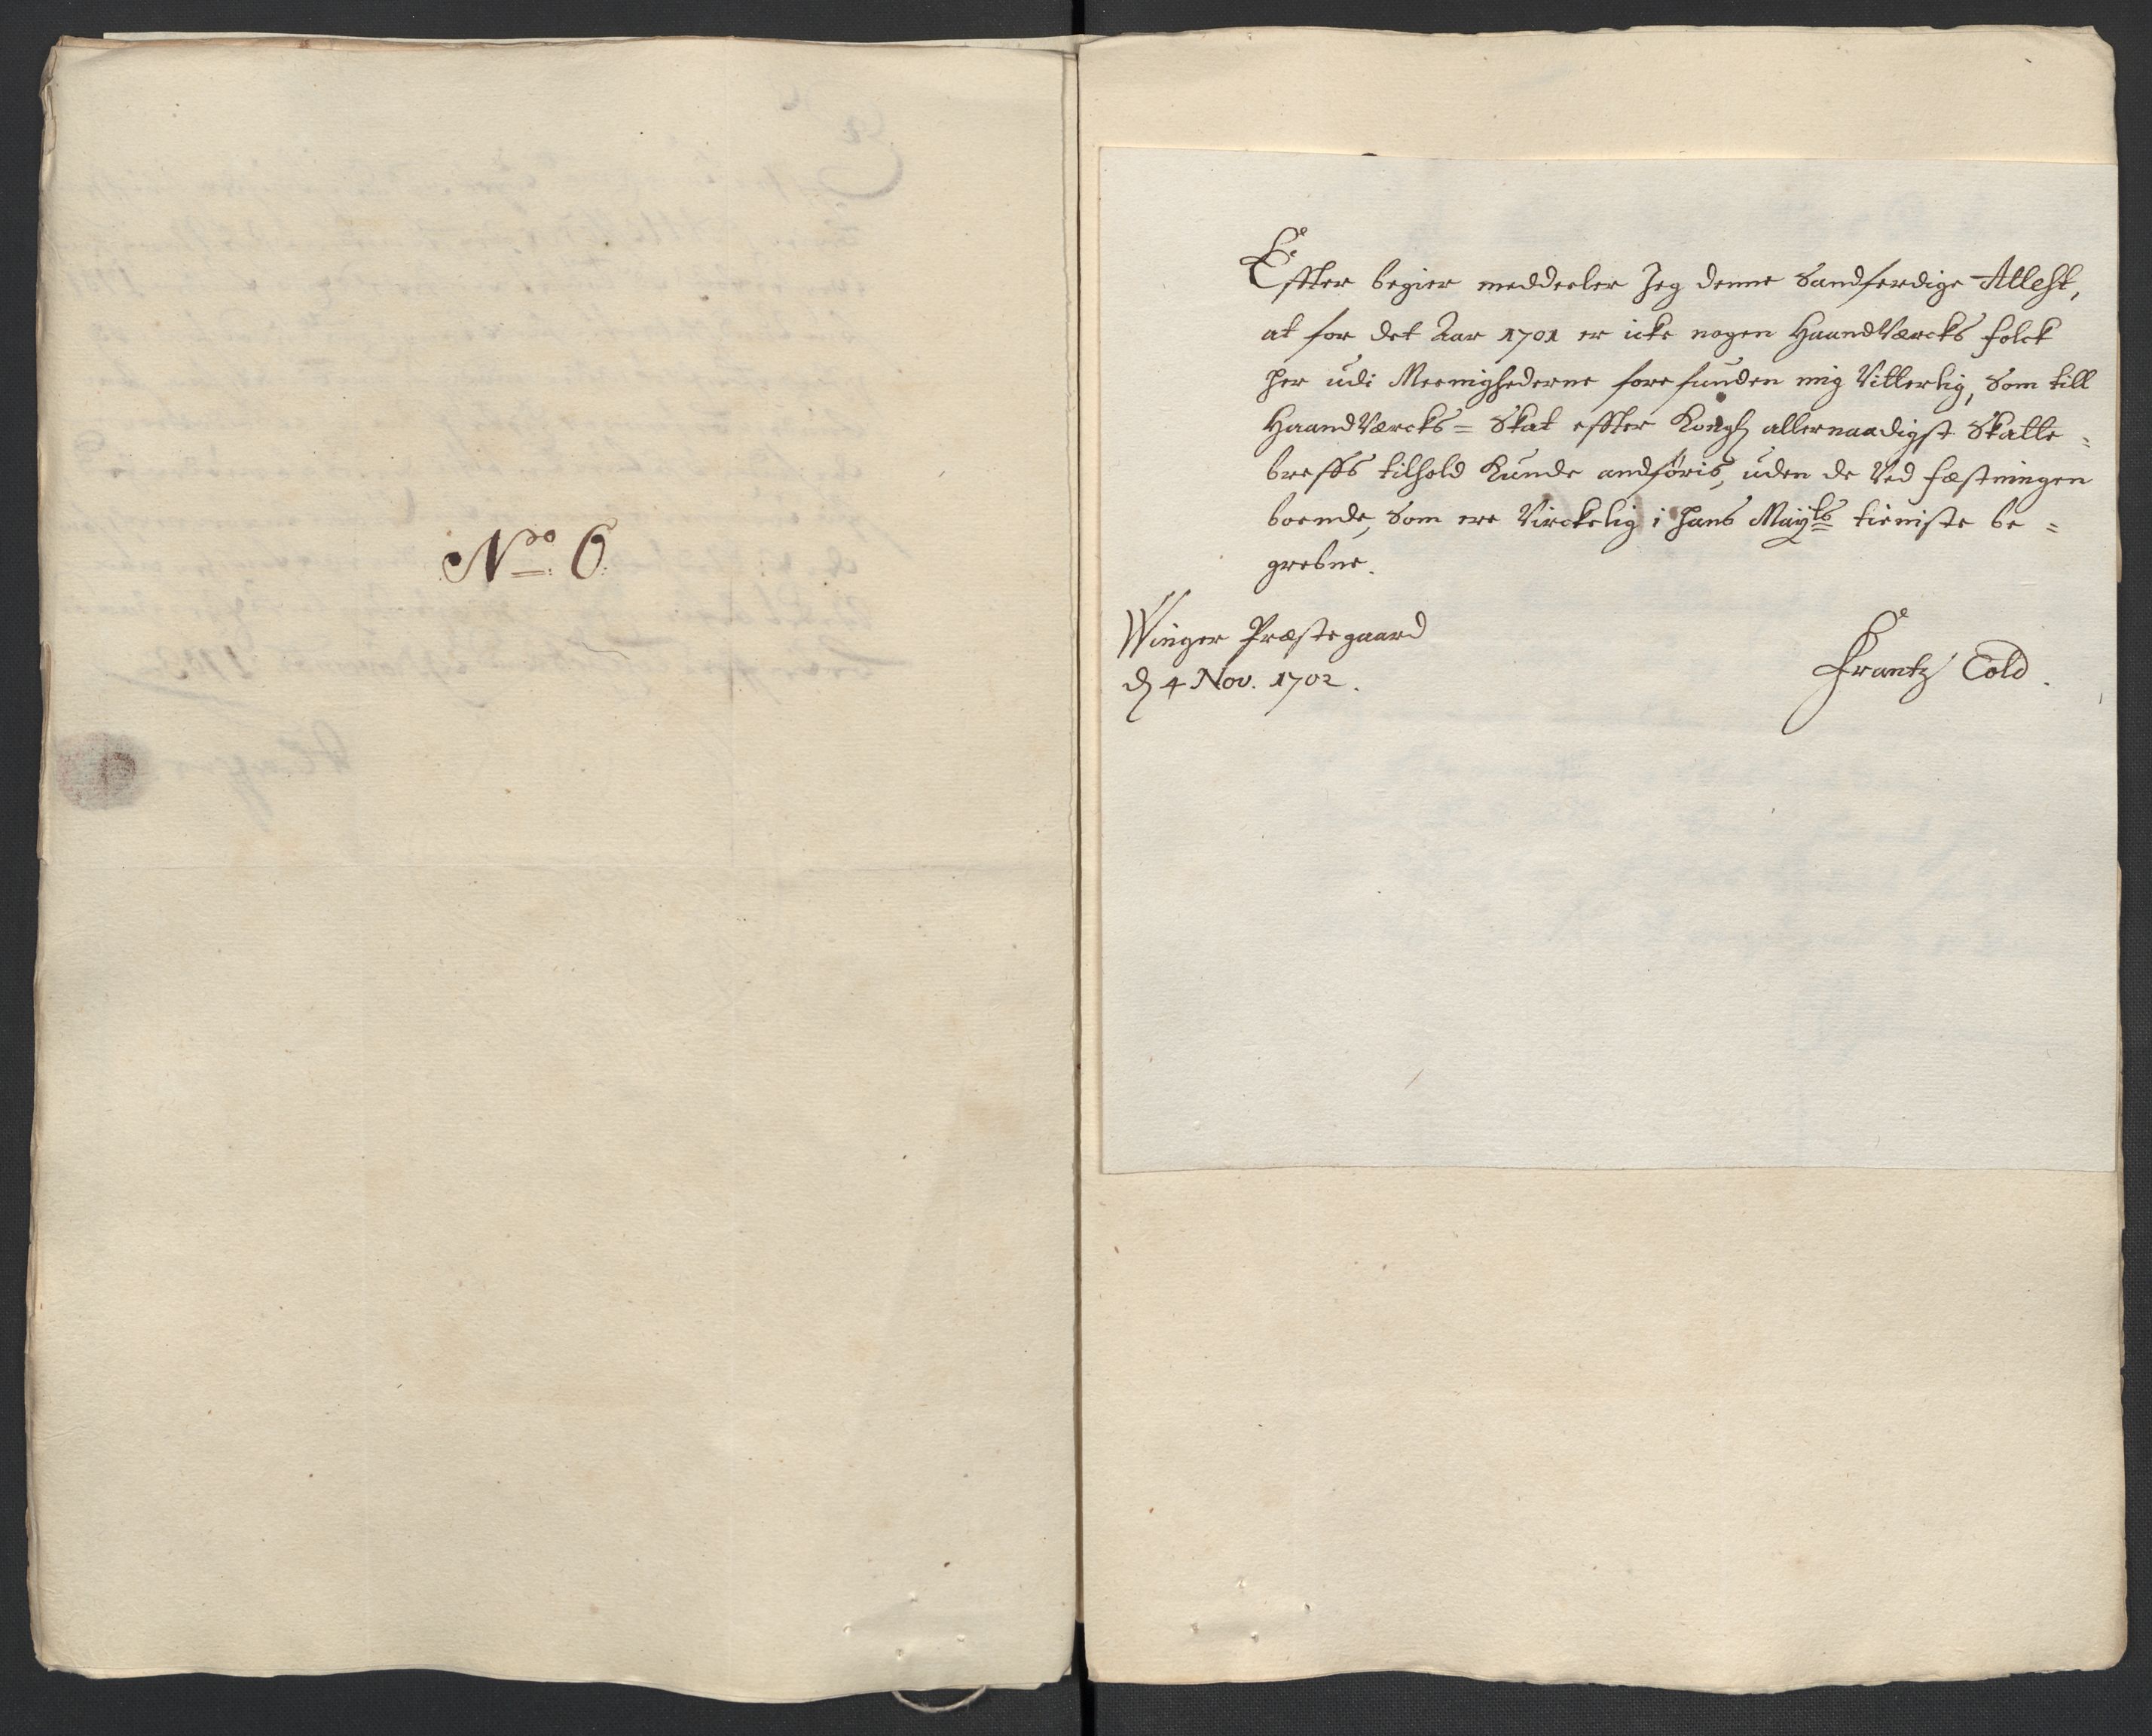 No. 6.
Effter begier meddeeler Jeg denne Sandferdige Attest,
at for det Aar 1701 er icke nogen Haandværcks folck
her udi Meenighederne forefunden mig vitterlig, Som till
Haandværcks= Skat effter Kongl allernaadigst Skatte=
breffs tilhold Kunde andføris, uden de ved fæstningen
boende, Som ere Virckelig i hans Mayts tieniste be=
grebne.
Winger Præstegaard
d 4 Nov. 1702.
Frantz Told.